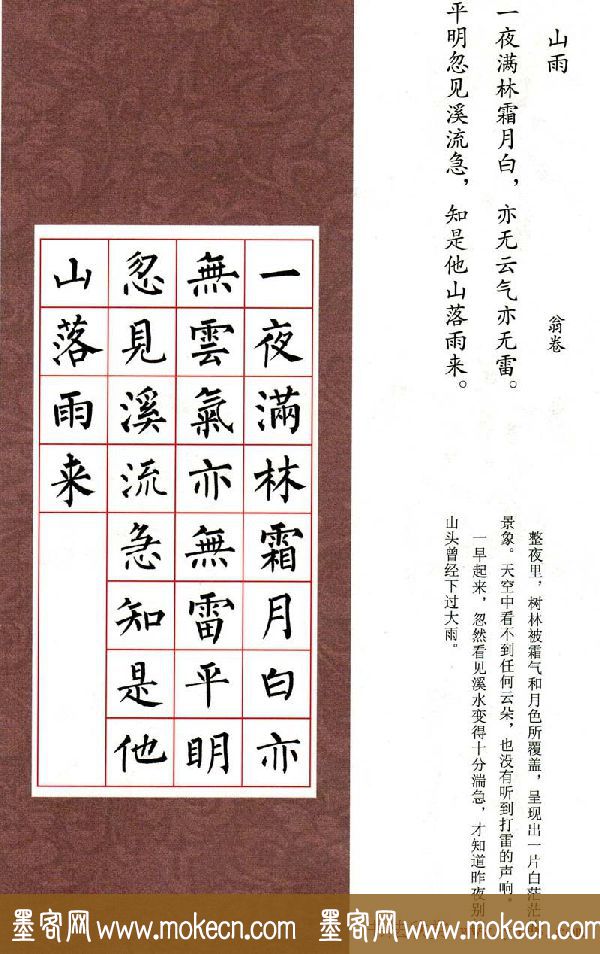 山雨
翁卷
一夜满林霜月白，亦无云气亦无雷。
平明忽见溪流急，知是他山落雨来。
整夜里，树林被霜气和月色所覆盖，呈现出一片白茫茫
景象。天空中看不到任何云朵，也没有听到打雷的声响。
一早起来，忽然看见溪水变得十分湍急，才知道昨夜别
山头曾经下过大雨。
一夜滿林霜月白亦
無雲氣亦無雷平明
忽見溪流急知是他
山落雨来
墨客网 www.mokecn.com 墨客网 www.mokecn.com